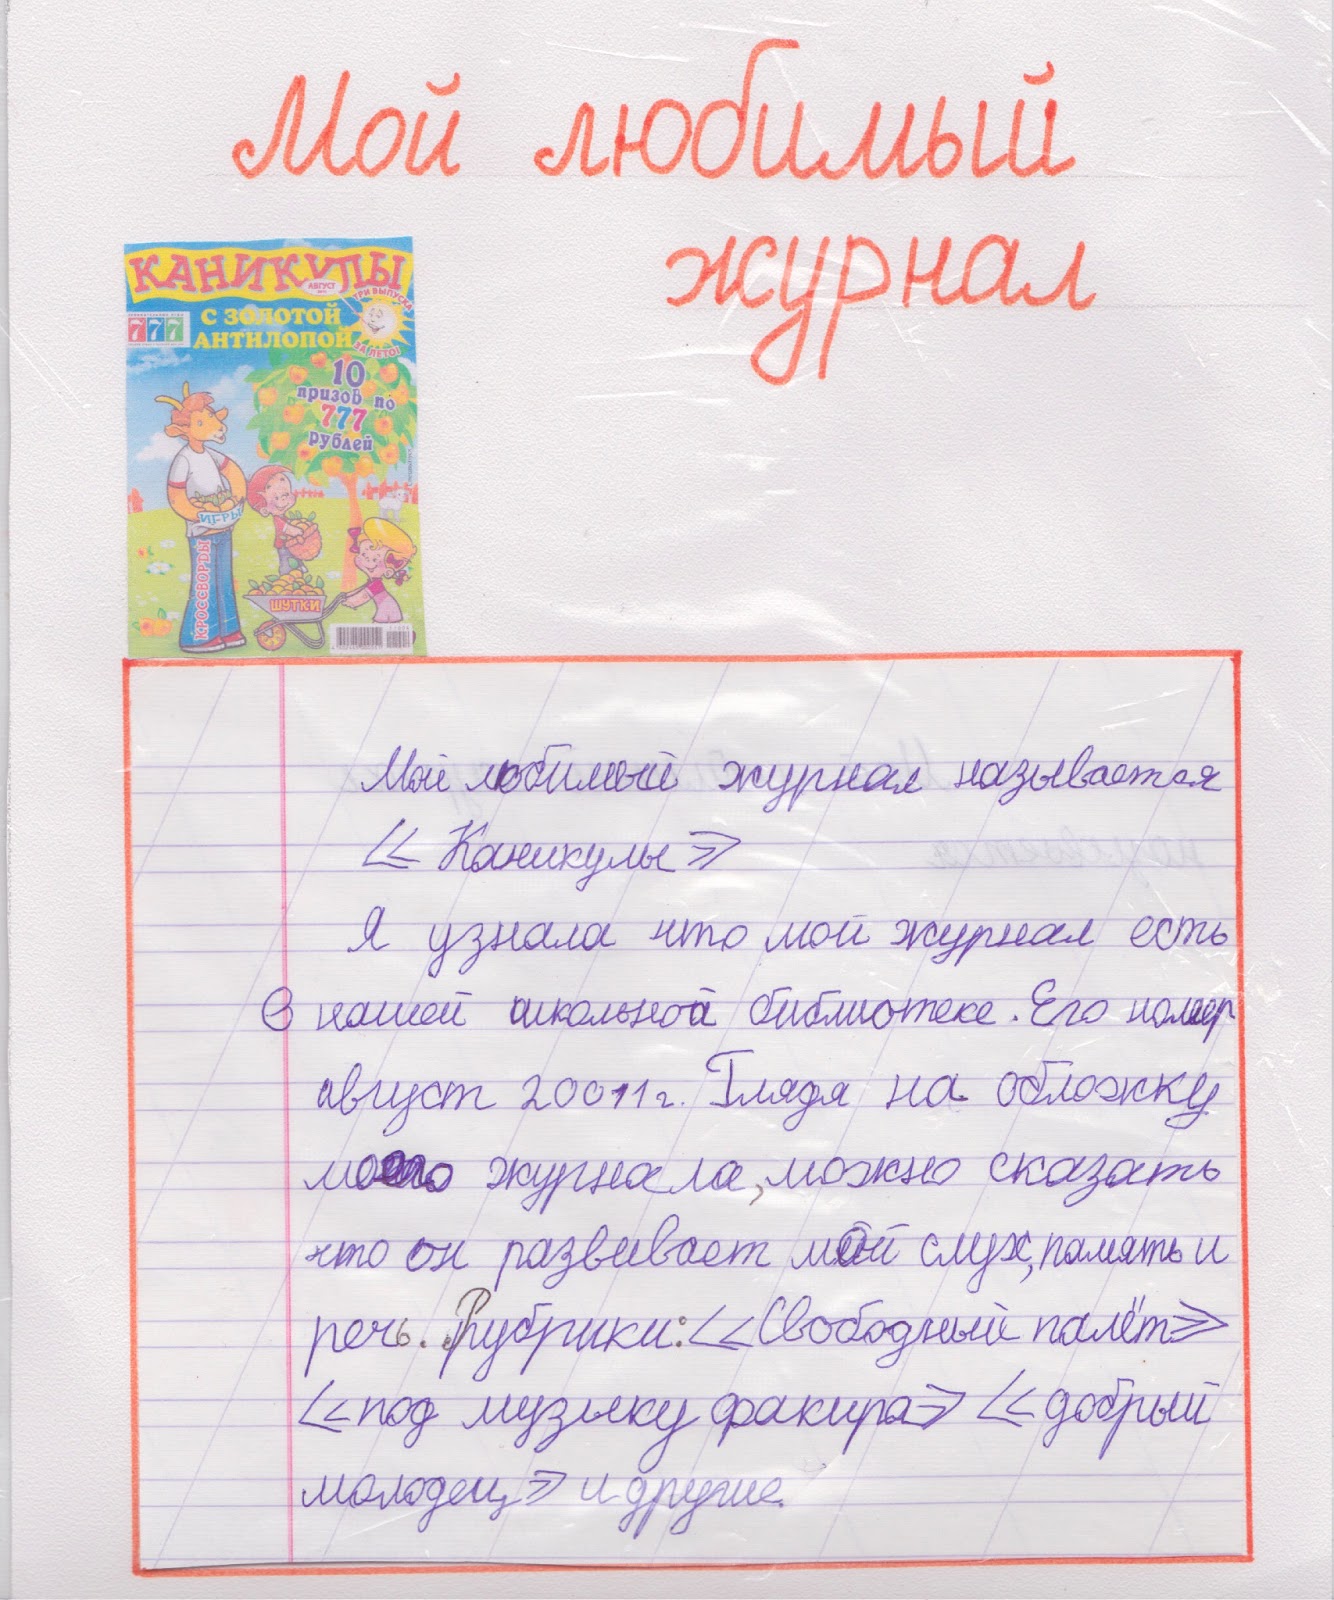 Мой любимый
журнал
КАНИКУЛЫ
АВГУСТ
ТРИ ВЫПУСКА
ЗА ЛЕТО!
777
С ЗОЛОТОЙ
АНТИЛОПОЙ
10
призов по
777
рублей
ИГРЫ
КРОССВОРДЫ
ШУТКИ
Мой любимый журнал называется
« Каникулы »
Я узнала что мой журнал есть
в нашей школьной библиотеке. Его номер
август 20011г. Глядя на обложку
моего журнала, можно сказать
что он развивает мой слух, память и
речь. Рубрики: «Свободный палёт»
«под музыку факира» «добрый
молодец» и другие.